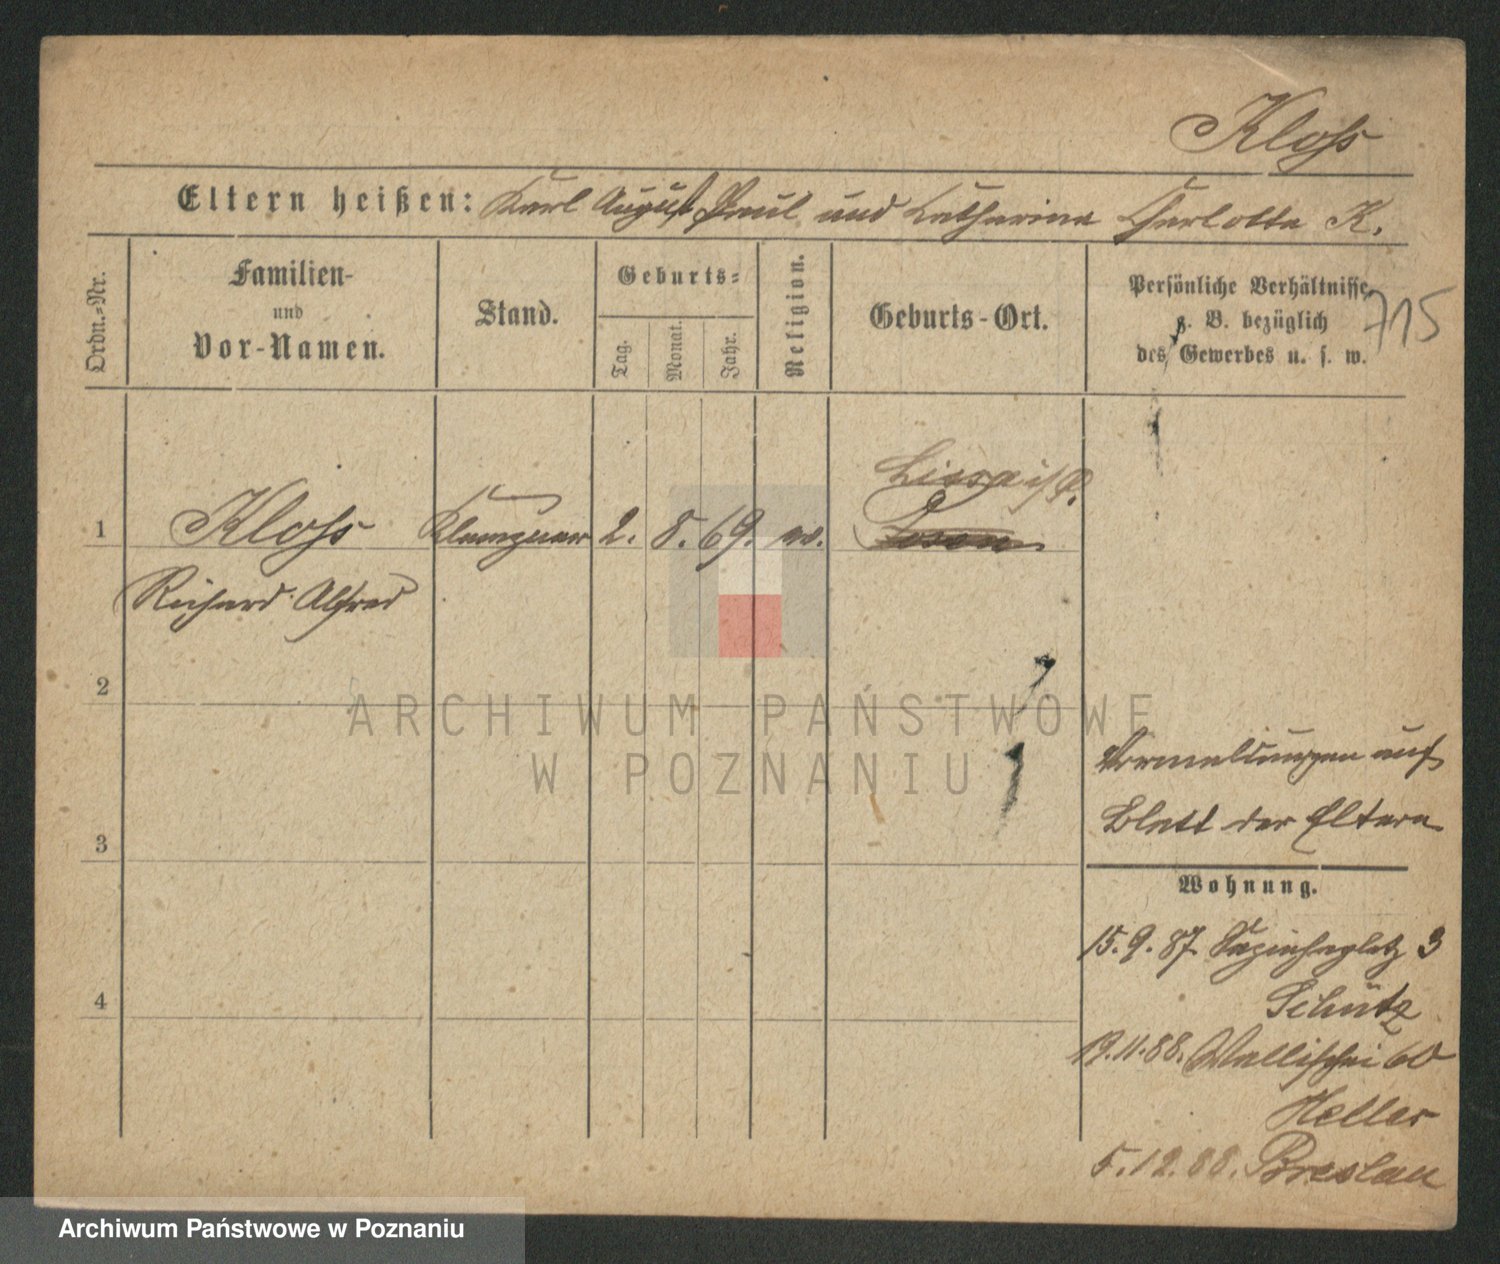 Kloß
Eltern heißen: Karl August Paul und Catharina Charlotte K.
Ordn.-Nr.
Familien-
und
Vor-Namen.
Stand.
Geburts-
Tag.
Monat.
Jahr.
Religion.
Geburts-Ort.
Persönliche Verhältnisse,
z. B. bezüglich
des Gewerbes u. s. w.
715
Lissa i/P.
1 Kloß Klempner 2. 8. 69. ev. Posen
Richard Alfred
2
ARCHIWUM PAŃSTWOWE
W POZNANIU
Vormeldungen auf
Blatt der Eltern
3
Wohnung.
15. 9. 87. Sapiehaplatz 3
Schütz
4
19. 11. 88. Wallischei 60
Heller
5. 12. 88. Breslau
Archiwum Państwowe w Poznaniu